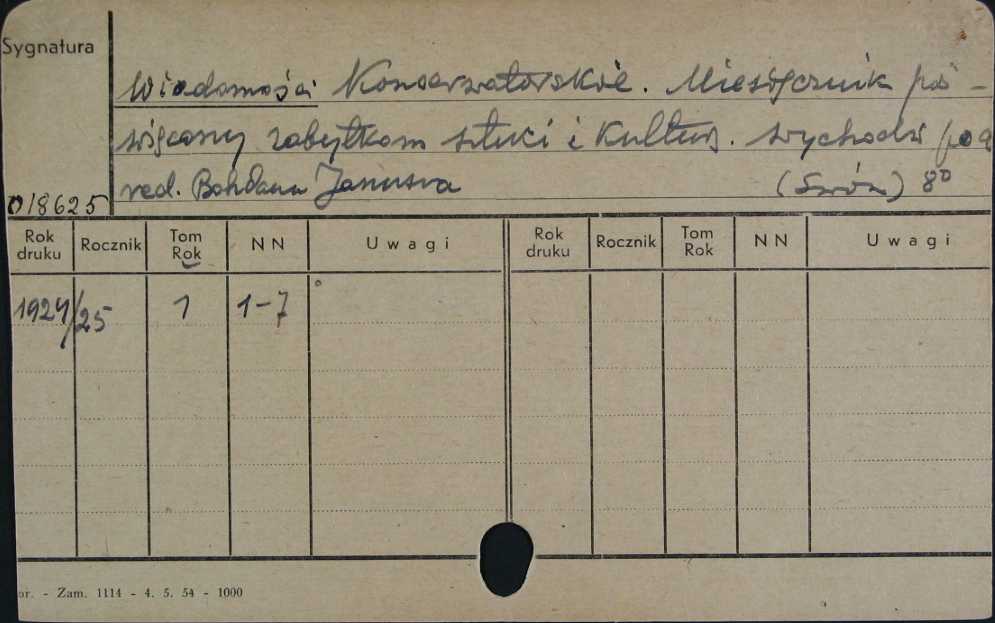 Sygnatura
Wiadomości Konserwatorskie. Miesięcznik po-
święcony zabytkom sztuki i kultury. Wychodzi pod
red. Bohdana Janusza (Lwów) 8°
018625
Rok druku Rocznik Tom Rok NN Uwagi Rok druku Rocznik Tom Rok NN Uwagi
1924/25 1 1-7
or. - Zam. 1114 - 4. 5. 54 - 1000